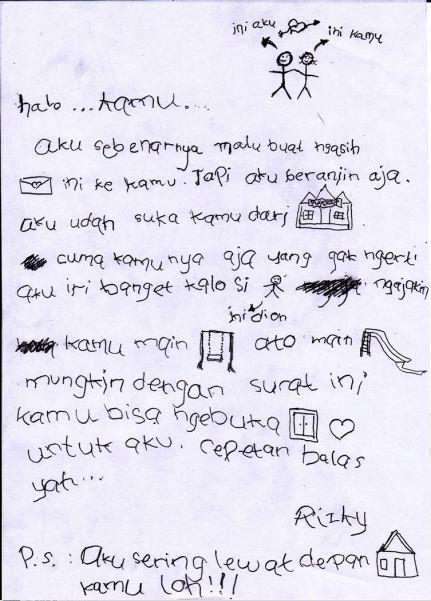 ini aku ini kamu
halo ...kamu...
aku sebenarnya malu buat ngasih
ini ke kamu. Tapi aku beranjin aja.
aku udah suka kamu dari
cuma kamu nya aja yang gak ngerti
aku iri banget kalo si ngajakin
ini dion
kamu main ato main
mungkin dengan surat ini
kamu bisa ngebuka
untuk aku. cepetan balas
yah...
Rizky
P.s. : Aku sering lewat depan
kamu loh!!!